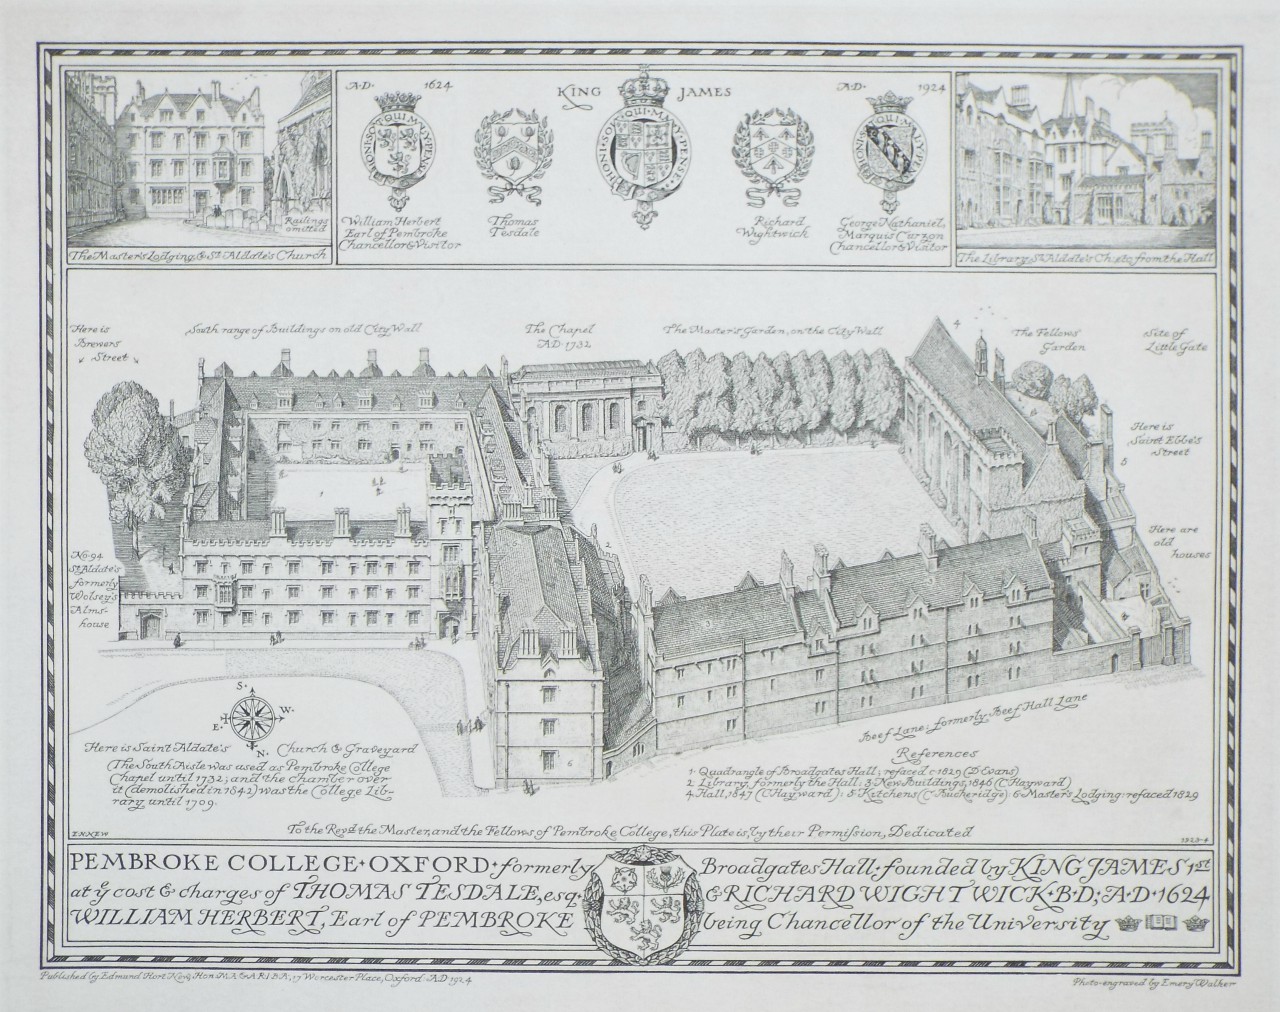 A·D· 1624
KING JAMES
A·D· 1924
HONI·SOIT·QUI·MAL·Y·PENSE
Railings
omitted
The Master's Lodging, & St. Aldate's Church
William Herbert
Earl of Pembroke
Chancellor & Visitor
Thomas
Tesdale
Richard
Wightwick
George Nathaniel,
Marquis Curzon
Chancellor & Visitor
The Library, St. Aldate's Ch. etc from the Hall
Here is
Brewers
Street
South range of Buildings on old City Wall
The Chapel
A.D. 1732
The Master's Garden, on the City Wall
4
The Fellows'
Garden
Site of
Little Gate
Here is
Saint Ebbe's
Street
5
Here are
old
houses
1
2
3
6
No. 94
St Aldate's
formerly
Wolsey's
Alms-
house
S.
E. W.
N.
Here is Saint Aldate's Church & Graveyard
The South Aisle was used as Pembroke College
Chapel until 1732; and the chamber over
it (demolished in 1842) was the College Lib-
rary, until 1709.
Beef Lane; formerly Beef Hall Lane
References
1· Quadrangle of Broadgates Hall; refaced c 1829 (D Evans)
2 Library, formerly the Hall: 3 New Buildings, 1846 (C Hayward)
4 Hall, 1847 (C Hayward): 5 Kitchens (C Buckeridge): 6 Master's Lodging: refaced 1829
E·H·NEW
To the Revd. the Master, and the Fellows of Pembroke College, this Plate is, by their Permission, Dedicated
1923-4
PEMBROKE COLLEGE·OXFORD·formerly Broadgates Hall: founded by KING JAMES 1st
at ye cost & charges of THOMAS TESDALE, esq. & RICHARD WIGHTWICK·B·D; A·D·1624
WILLIAM HERBERT, Earl of PEMBROKE being Chancellor of the University
Published by Edmund Hort New, Hon. M.A. & A.R.I.B.A; 17 Worcester Place, Oxford·AD 1924
Photo-engraved by Emery Walker